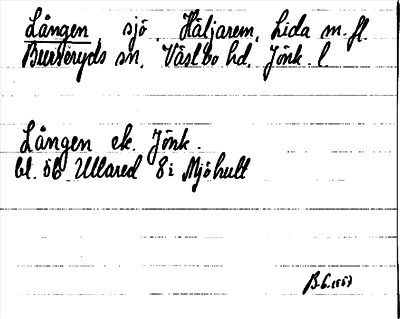 Lången, sjö, Häljarem, Lida m. fl.
Burseryds sn. Västbo hd. Jönk. l.
Lången ek. Jönk.
bl. öb Ullared 8i Mjöhult